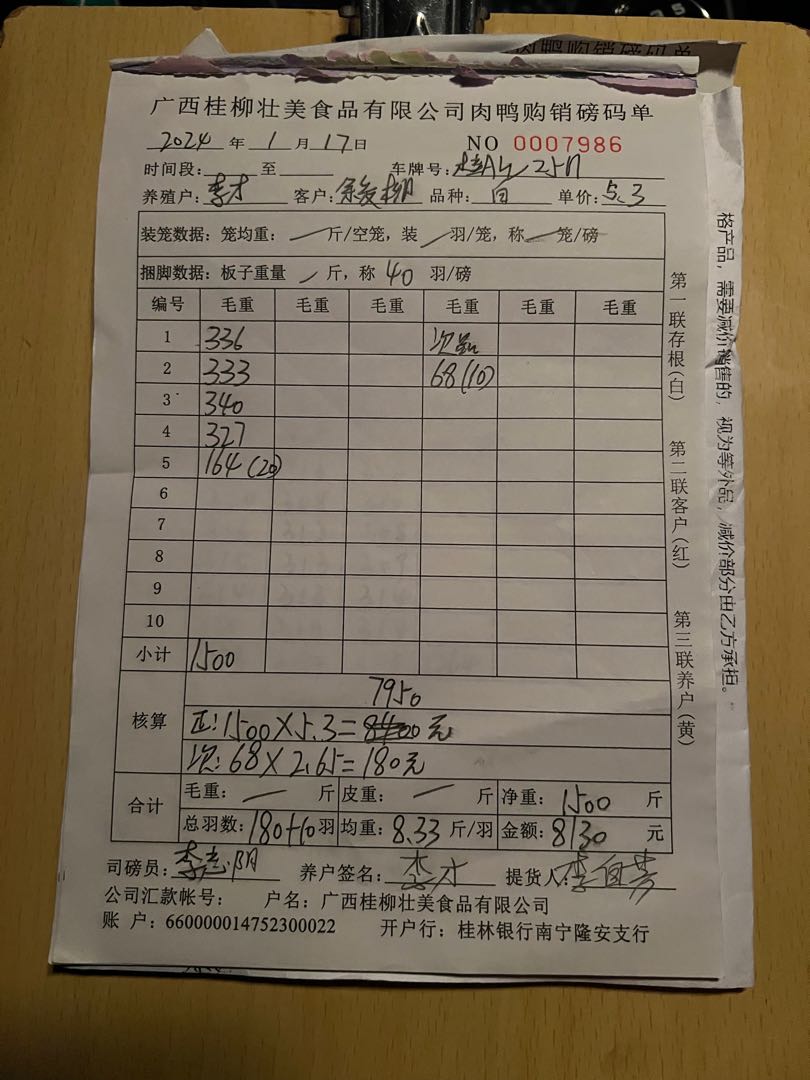 广西桂柳壮美食品有限公司肉鸭购销磅码单
2024 年 1 月 17 日 NO 0007986
时间段: 至 车牌号:
养殖户: 李才 客户: 品种: 白 单价: 5.3
装笼数据: 笼均重: 一 斤/空笼, 装 / 羽/笼, 称 一 笼/磅
捆脚数据: 板子重量 一 斤, 称 40 羽/磅
编号 毛重 毛重 毛重 毛重 毛重 毛重
1 336
2 333 68(10)
3 340
4 327
5 164(20)
6
7
8
9
10
小计 1500
核算
7950
正: 1500×5.3= 元
次: 68×2.65=180元
合计
毛重: 一 斤 皮重: 一 斤 净重: 1500 斤
总羽数: 180+10 羽 均重: 8.33 斤/羽 金额: 8130 元
司磅员: 养户签名: 李才 提货人:
公司汇款帐号: 户名: 广西桂柳壮美食品有限公司
账 户: 660000014752300022 开户行: 桂林银行南宁隆安支行
第一联存根(白) 第二联客户(红) 第三联养户(黄)
格产品, 需要减价销售的, 视为等外品, 减价部分由乙方承担。